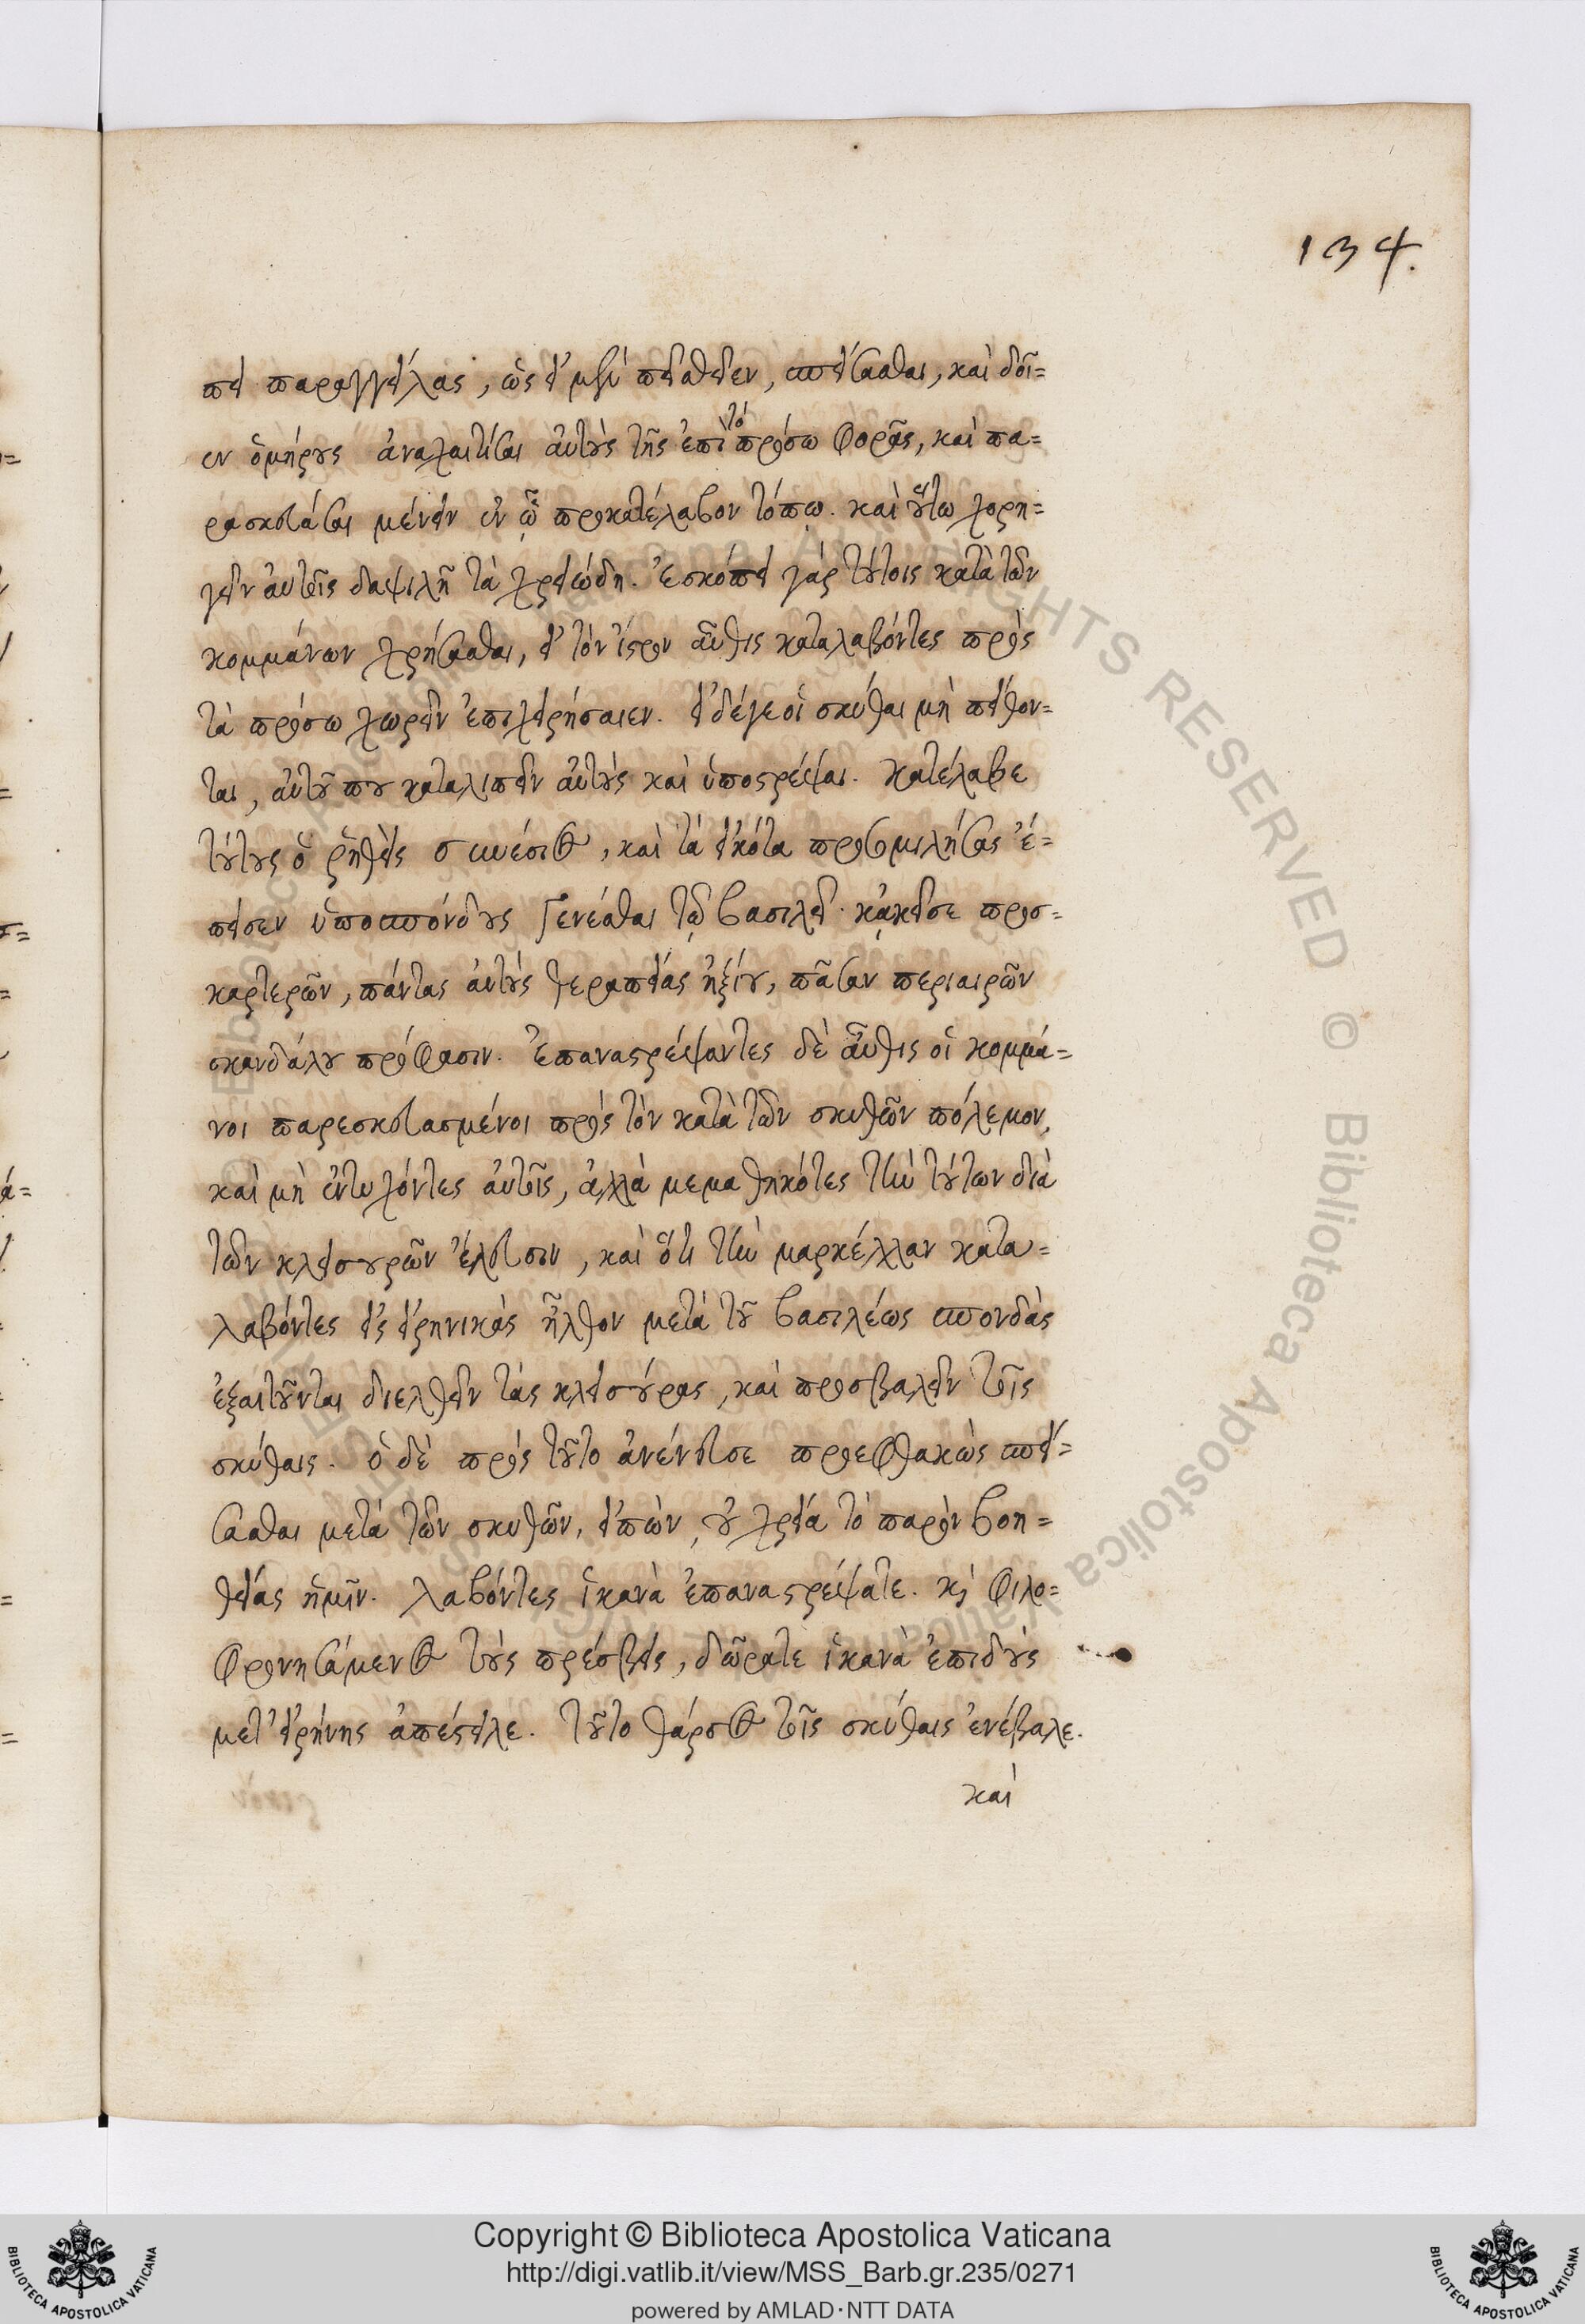 134.
πει παραγγείλας, ὡς εἰ μὲν πεισθεῖεν, σπείσασθαι, καὶ δοῖ=
εν ὁμήρους ἀναχαιτίσαι αὐτοὺς τῆς ἐπὶ τὸ πρόσω φορᾶς, καὶ πα=
ρασκευάσαι μένειν ἐν ᾧ προκατέλαβον τόπῳ. καὶ οὕτω χορη=
γεῖν αὐτοῖς δαψιλῆ τὰ χρειώδη. Ἐσκόπει γὰρ τούτοις κατὰ τῶν
κομμάνων χρήσασθαι, εἰ τὸν ἴστρον αὖθις καταλαβόντες πρὸς
τὰ πρόσω χωρεῖν ἐπιχειρήσαιεν. εἰ δέγε οἱ σκύθαι μὴ πείθον=
ται, αὐτοῦ που καταλιπεῖν αὐτοὺς καὶ ὑποστρέψαι. κατέλαβε
τούτους ὁ ῥηθεὶς συνέσιος, καὶ τὰ εἰκότα προσομιλήσας ἔ=
πεισεν ὑποσπόνδους γενέσθαι τῷ βασιλεῖ. κᾀκεῖσε προσ=
καρτερῶν, πάντας αὐτοὺς θεραπείας ἠξίου, πᾶσαν περιαιρῶν
σκανδάλου πρόφασιν. Ἐπαναστρέψαντες δὲ αὖθις οἱ κομμά=
νοι παρεσκευασμένοι πρὸς τὸν κατὰ τῶν σκυθῶν πόλεμον,
καὶ μὴ ἐντυχόντες αὐτοῖς, ἀλλὰ μεμαθηκότες τὴν τούτων διὰ
τῶν κλεισουρῶν ἔλευσιν, καὶ ὅτι τὴν μαρκέλλαν κατα=
λαβόντες εἰς εἰρηνικὰς ἦλθον μετὰ τοῦ βασιλέως σπονδὰς
ἐξαιτοῦνται διελθεῖν τὰς κλεισούρας, καὶ προσβαλεῖν τοῖς
σκύθαις. ὁ δὲ πρὸς τοῦτο ἀνένευσε προεφθακὼς σπεί=
σασθαι μετὰ τῶν σκυθῶν, εἰπὼν, οὐ χρεία τὸ παρὸν βοη=
θείας ἡμῖν. λαβόντες ἱκανὰ ἐπαναστρέψατε. καὶ φιλο=
φρονησάμενος τοὺς πρέσβεις, δῶρατε ἱκανὰ ἐπιδοὺς
μετ' εἰρήνης ἀπέστειλε. τοῦτο θάρσος τοῖς σκύθαις ἐνέβαλε.
καὶ
Copyright © Biblioteca Apostolica Vaticana
http://digi.vatlib.it/view/MSS_Barb.gr.235/0271
powered by AMLAD·NTT DATA